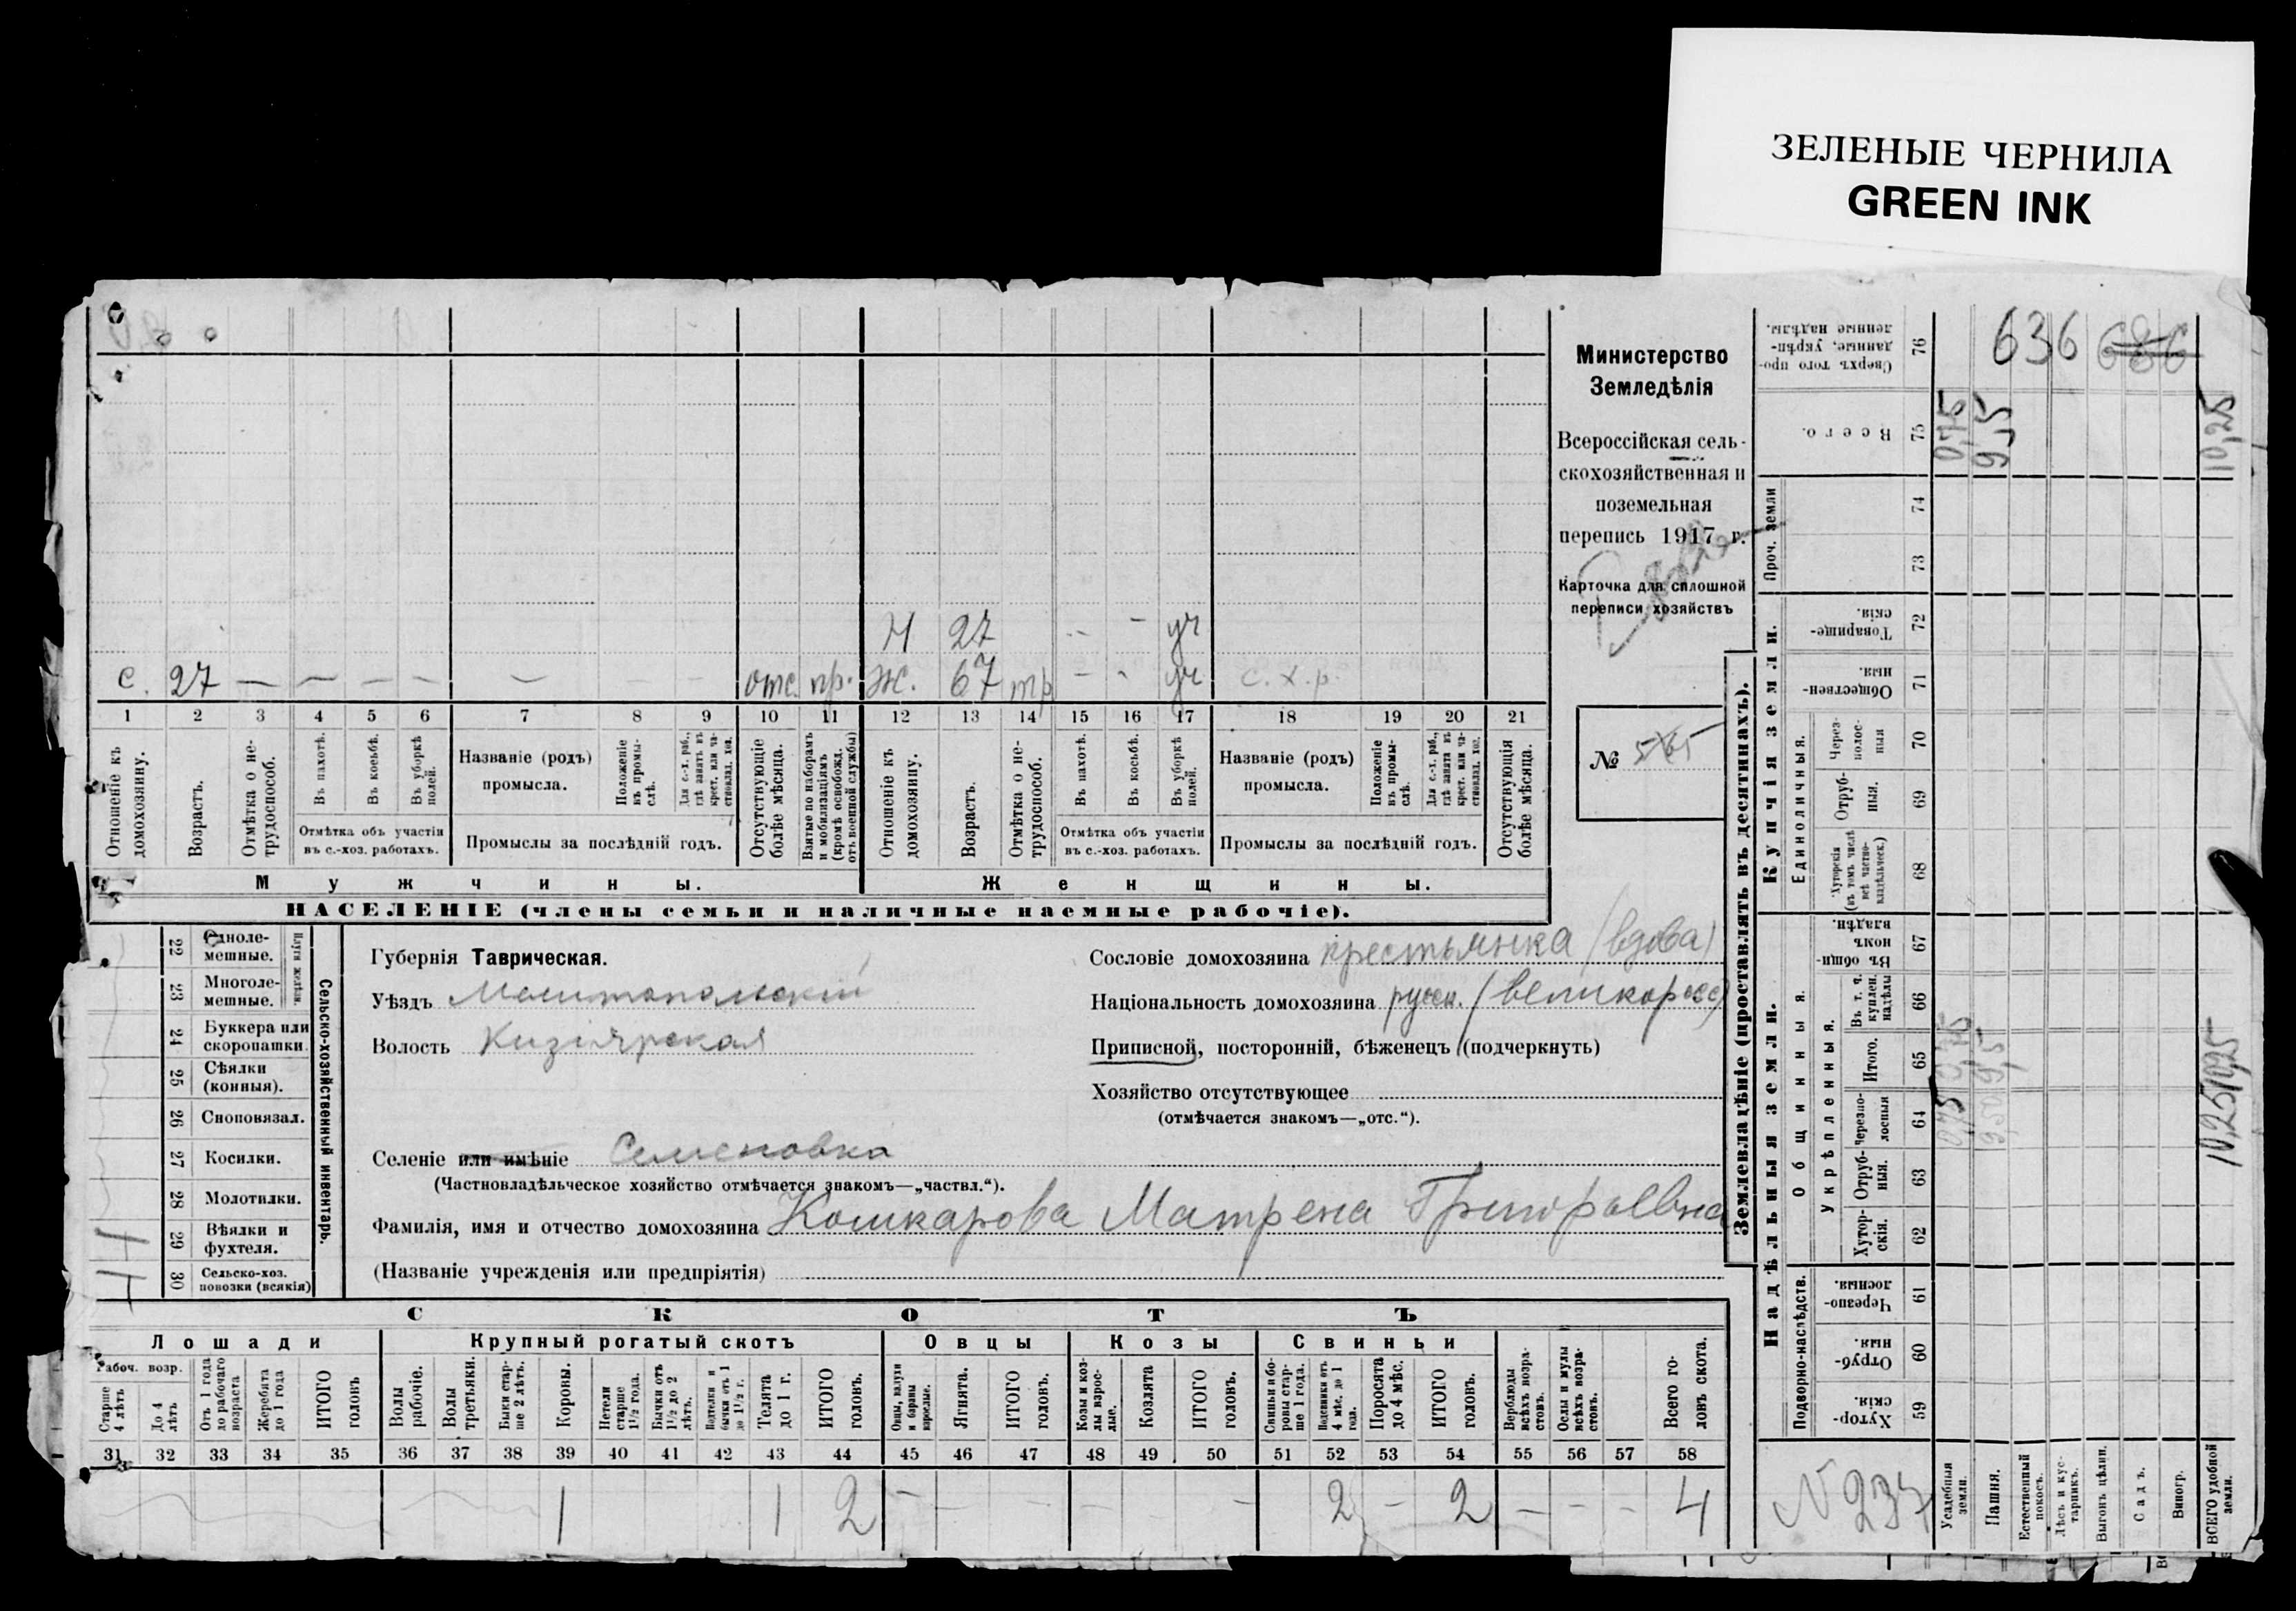 ЗЕЛЕНЫЕ ЧЕРНИЛА
GREEN INK
Министерство
Земледѣлія
Всероссійская сель-
скохозяйственная и
поземельная
перепись 1917 г.
Карточка для сплошной
переписи хозяйствъ
№ 565
27 уч
с. 27 — — — — — — — отс. пр. ж. 67 тр - - уч с.х.р.
1 2 3 4 5 6 7 8 9 10 11 12 13 14 15 16 17 18 19 20 21
Отношеніе къ домохозяину.
Возрастъ.
Отмѣтка о не-трудоспособ.
Въ пахотѣ.
Въ косьбѣ.
Въ уборкѣ полей.
Отмѣтка объ участіи
въ с.-хоз. работахъ.
Названіе (родъ)
промысла.
Положеніе въ промы-слѣ.
Для с.-х. раб., гдѣ занятъ въ крест. или ча-стновлад. хоз.
Промыслы за послѣдній годъ.
Отсутствующіе болѣе мѣсяца.
Взятые по наборамъ и мобилизаціямъ (кромѣ освобожд. отъ военной службы)
Отношеніе къ домохозяину.
Возрастъ.
Отмѣтка о не-трудоспособ.
Въ пахотѣ.
Въ косьбѣ.
Въ уборкѣ полей.
Отмѣтка объ участіи
въ с.-хоз. работахъ.
Названіе (родъ)
промысла.
Положеніе въ промы-слѣ.
Для с.-х. раб., гдѣ занята въ крест. или ча-стновлад. хоз.
Промыслы за послѣдній годъ.
Отсутствующія болѣе мѣсяца.
Мужчины.
Женщины.
НАСЕЛЕНІЕ (члены семьи и наличные наемные рабочіе).
Сельско-хозяйственный инвентарь.
22 Одноле-мешные.
23 Многоле-мешные.
24 Буккера или скоропашки.
25 Сѣялки (конныя).
26 Сноповязал.
27 Косилки.
28 Молотилки.
29 Вѣялки и фухтеля.
30 Сельско-хоз. повозки (всякія)
Губернія Таврическая.
Уѣздъ Мелитопольскій
Волость Кизіярская
Селеніе или имѣніе Семеновка
(Частновладѣльческое хозяйство отмѣчается знакомъ—„частвл.“).
Фамилія, имя и отчество домохозяина Кошкарова Матрена Григорьевна
(Названіе учрежденія или предпріятія)
Сословіе домохозяина крестьянка (вдова)
Національность домохозяина русск. (великоросс)
Приписной, посторонній, бѣженецъ (подчеркнуть)
Хозяйство отсутствующее
(отмѣчается знакомъ—„отс.“).
СКОТЪ
Лошади
Крупный рогатый скотъ
Овцы
Козы
Свиньи
Рабоч. возр.
Старше 4 лѣтъ
До 4 лѣтъ
Отъ 1 года до рабочаго возраста
Жеребята до 1 года
ИТОГО головъ
Волы рабочіе.
Волы третьяки.
Быки стар-ше 2 лѣтъ.
Коровы.
Нетели старше 1½ года.
Бычки отъ 1½ до 2 лѣтъ.
Подтелки и бычки отъ 1 до 1½ г.
Телята до 1 г.
ИТОГО головъ.
Овцы, валухи и бараны взрослые.
Ягнята.
ИТОГО головъ.
Козы и коз-лы взрос-лые.
Козлята
ИТОГО головъ.
Свиньи и бо-ровы стар-ше 1 года.
Подсвинки отъ 4 мѣс. до 1 года.
Поросята до 4 мѣс.
ИТОГО головъ.
Верблюды всѣхъ возра-стовъ.
Ослы и мулы всѣхъ возра-стовъ.
Всего го-ловъ скота.
31 32 33 34 35 36 37 38 39 40 41 42 43 44 45 46 47 48 49 50 51 52 53 54 55 56 57 58
1 1 2 — — — — — 2 — 2 — — — 4
Землевладѣніе (проставлять въ десятинахъ).
Надѣльныя земли.
Купчія земли.
Проч. земли
Подворно-наслѣдств.
Общинныя.
Укрѣпленныя.
Единоличныя.
76 Сверхъ того про-данные, укрѣп-ленные надѣлы.
75 Всего.
74
73
72 Товарище-скія.
71 Обществен-ныя
70 Через-полос-ныя
69 Отруб-ныя.
68 Хуторскія (въ томъ числѣ всѣ частно-владѣльческ.)
67 Въ общин-номъ владѣн.
66 Въ т. ч. куплен. надѣлы
65 Итого.
64 Черезпо-лосныя
63 Отруб-ныя.
62 Хутор-скія.
61 Черезпо-лосныя.
60 Отруб-ныя.
59 Хутор-скія.
636 686
0,75
9,5
10,25
0,75 0,75
9,50 9,5
10,25 10,25
N 237
Усадебныя земли.
Пашня.
Естественный покосъ.
Лѣсъ и кус-тарникъ.
Выгонъ цѣлин.
Садъ.
Виногр.
ВСЕГО удобной земли.